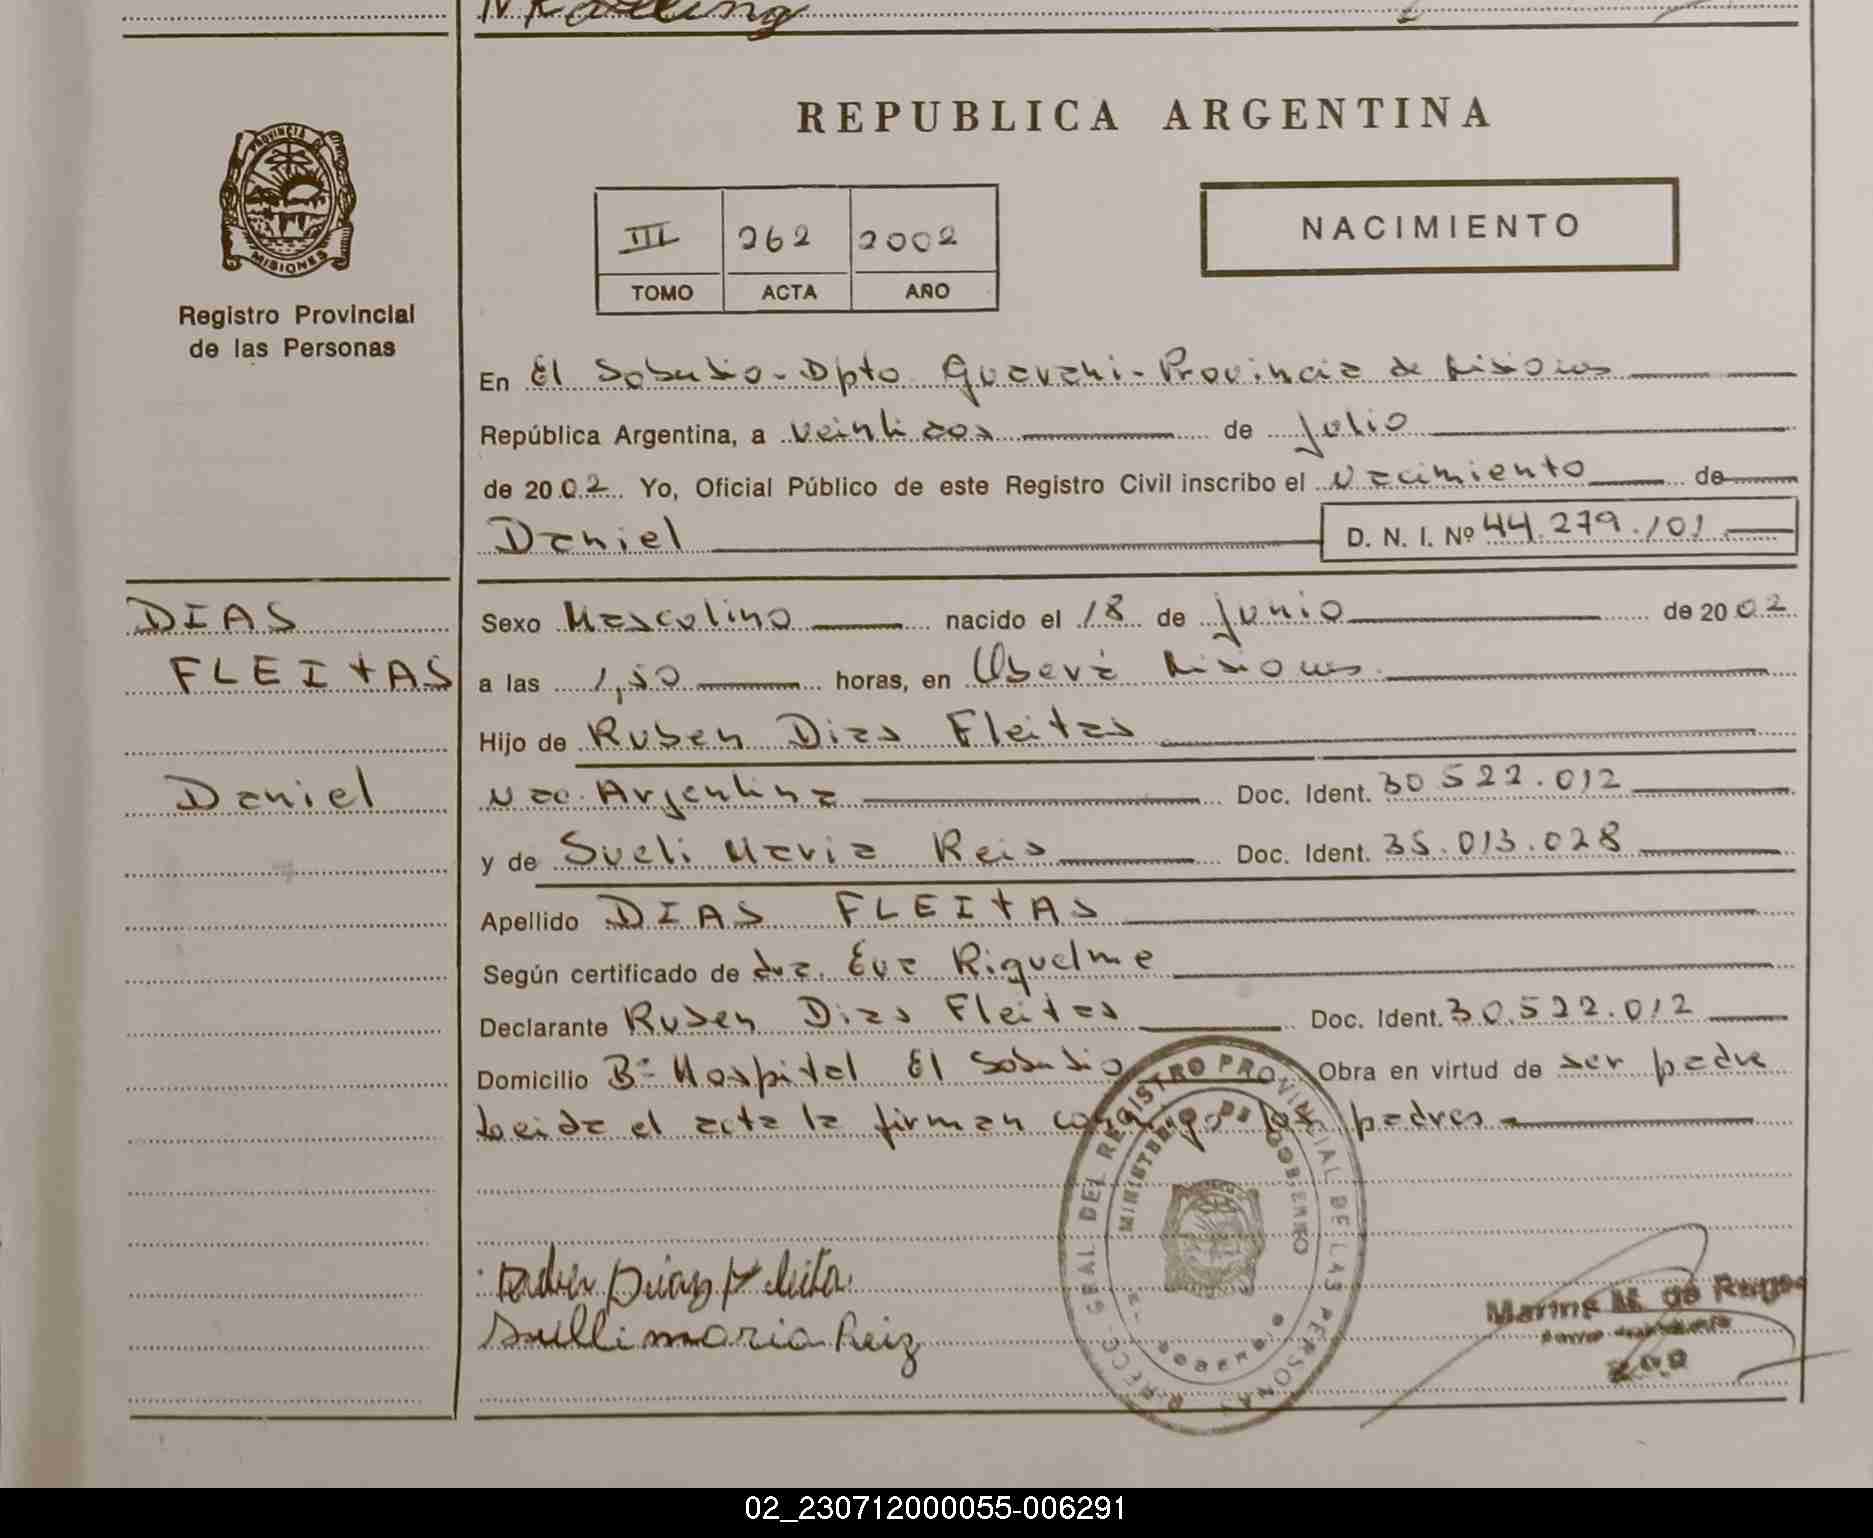 REPUBLICA ARGENTINA
PROVINCIA DE
MISIONES
Registro Provincial
de las Personas
III 262 2002
TOMO ACTA AÑO
NACIMIENTO
En El Soberbio - Dpto Guarani - Provincia de Misiones
República Argentina, a veintidos de Julio
de 2002 Yo, Oficial Público de este Registro Civil inscribo el Nacimiento de
Daniel D. N. I. Nº 44.279.101
DIAS
FLEITAS
Daniel
Sexo Masculino nacido el 18 de Junio de 2002
a las 1,50 horas, en Oberá Misiones
Hijo de Ruben Dias Fleitas
Nac. Argentina Doc. Ident. 30522.012
y de Sueli Maria Reis Doc. Ident. 35.013.028
Apellido DIAS FLEITAS
Según certificado de dra. Eva Riquelme
Declarante Ruben Dias Fleitas Doc. Ident. 30.522.012
Domicilio Bº Hospital El Soberbio Obra en virtud de ser padre
Leida el acta la firman conmigo los padres
REGISTRO PROVINCIAL DE LAS PERSONAS
MINISTERIO DE GOBIERNO
Ruben Dias Fleita
Suelli maria Reiz
02_230712000055-006291